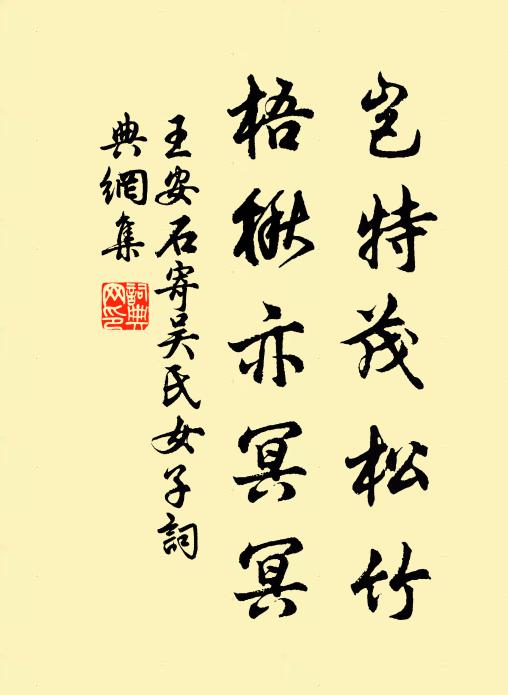 豈特茂松竹
梧楸亦冥冥
王安石寄吳氏女子詞
典網集
詞典
网印